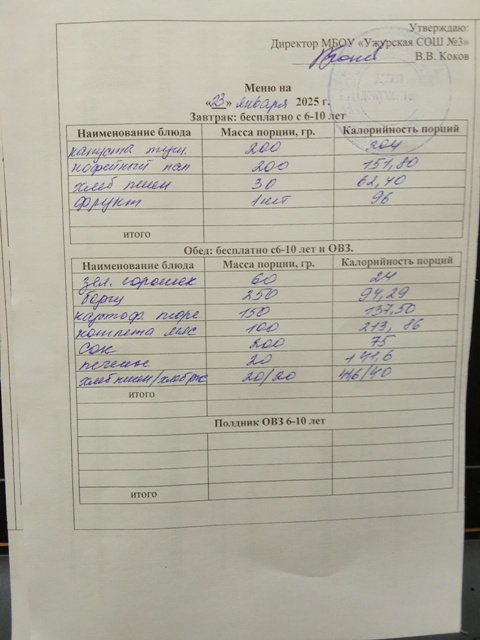 Утверждаю:
Директор МБОУ «Ужурская СОШ №3»
В.В. Коков
Меню на
«23» января 2025 г.
Завтрак: бесплатно с 6-10 лет
Наименование блюда Масса порции, гр. Калорийность порций
капуста туш. 200 304
кофейный нап 200 151,80
хлеб пшен 30 62,40
фрукт 1шт 96
итого
Обед: бесплатно с6-10 лет и ОВЗ.
Наименование блюда Масса порции, гр. Калорийность порций
зел. горошек 60 24
борщ 250 94,29
картоф пюре 150 137,50
котлета мяс 100 213,86
Сок 200 75
печенье 20 141,6
хлеб пшен/хлеб рж 20/20 /40
итого
Полдник ОВЗ 6-10 лет
итого